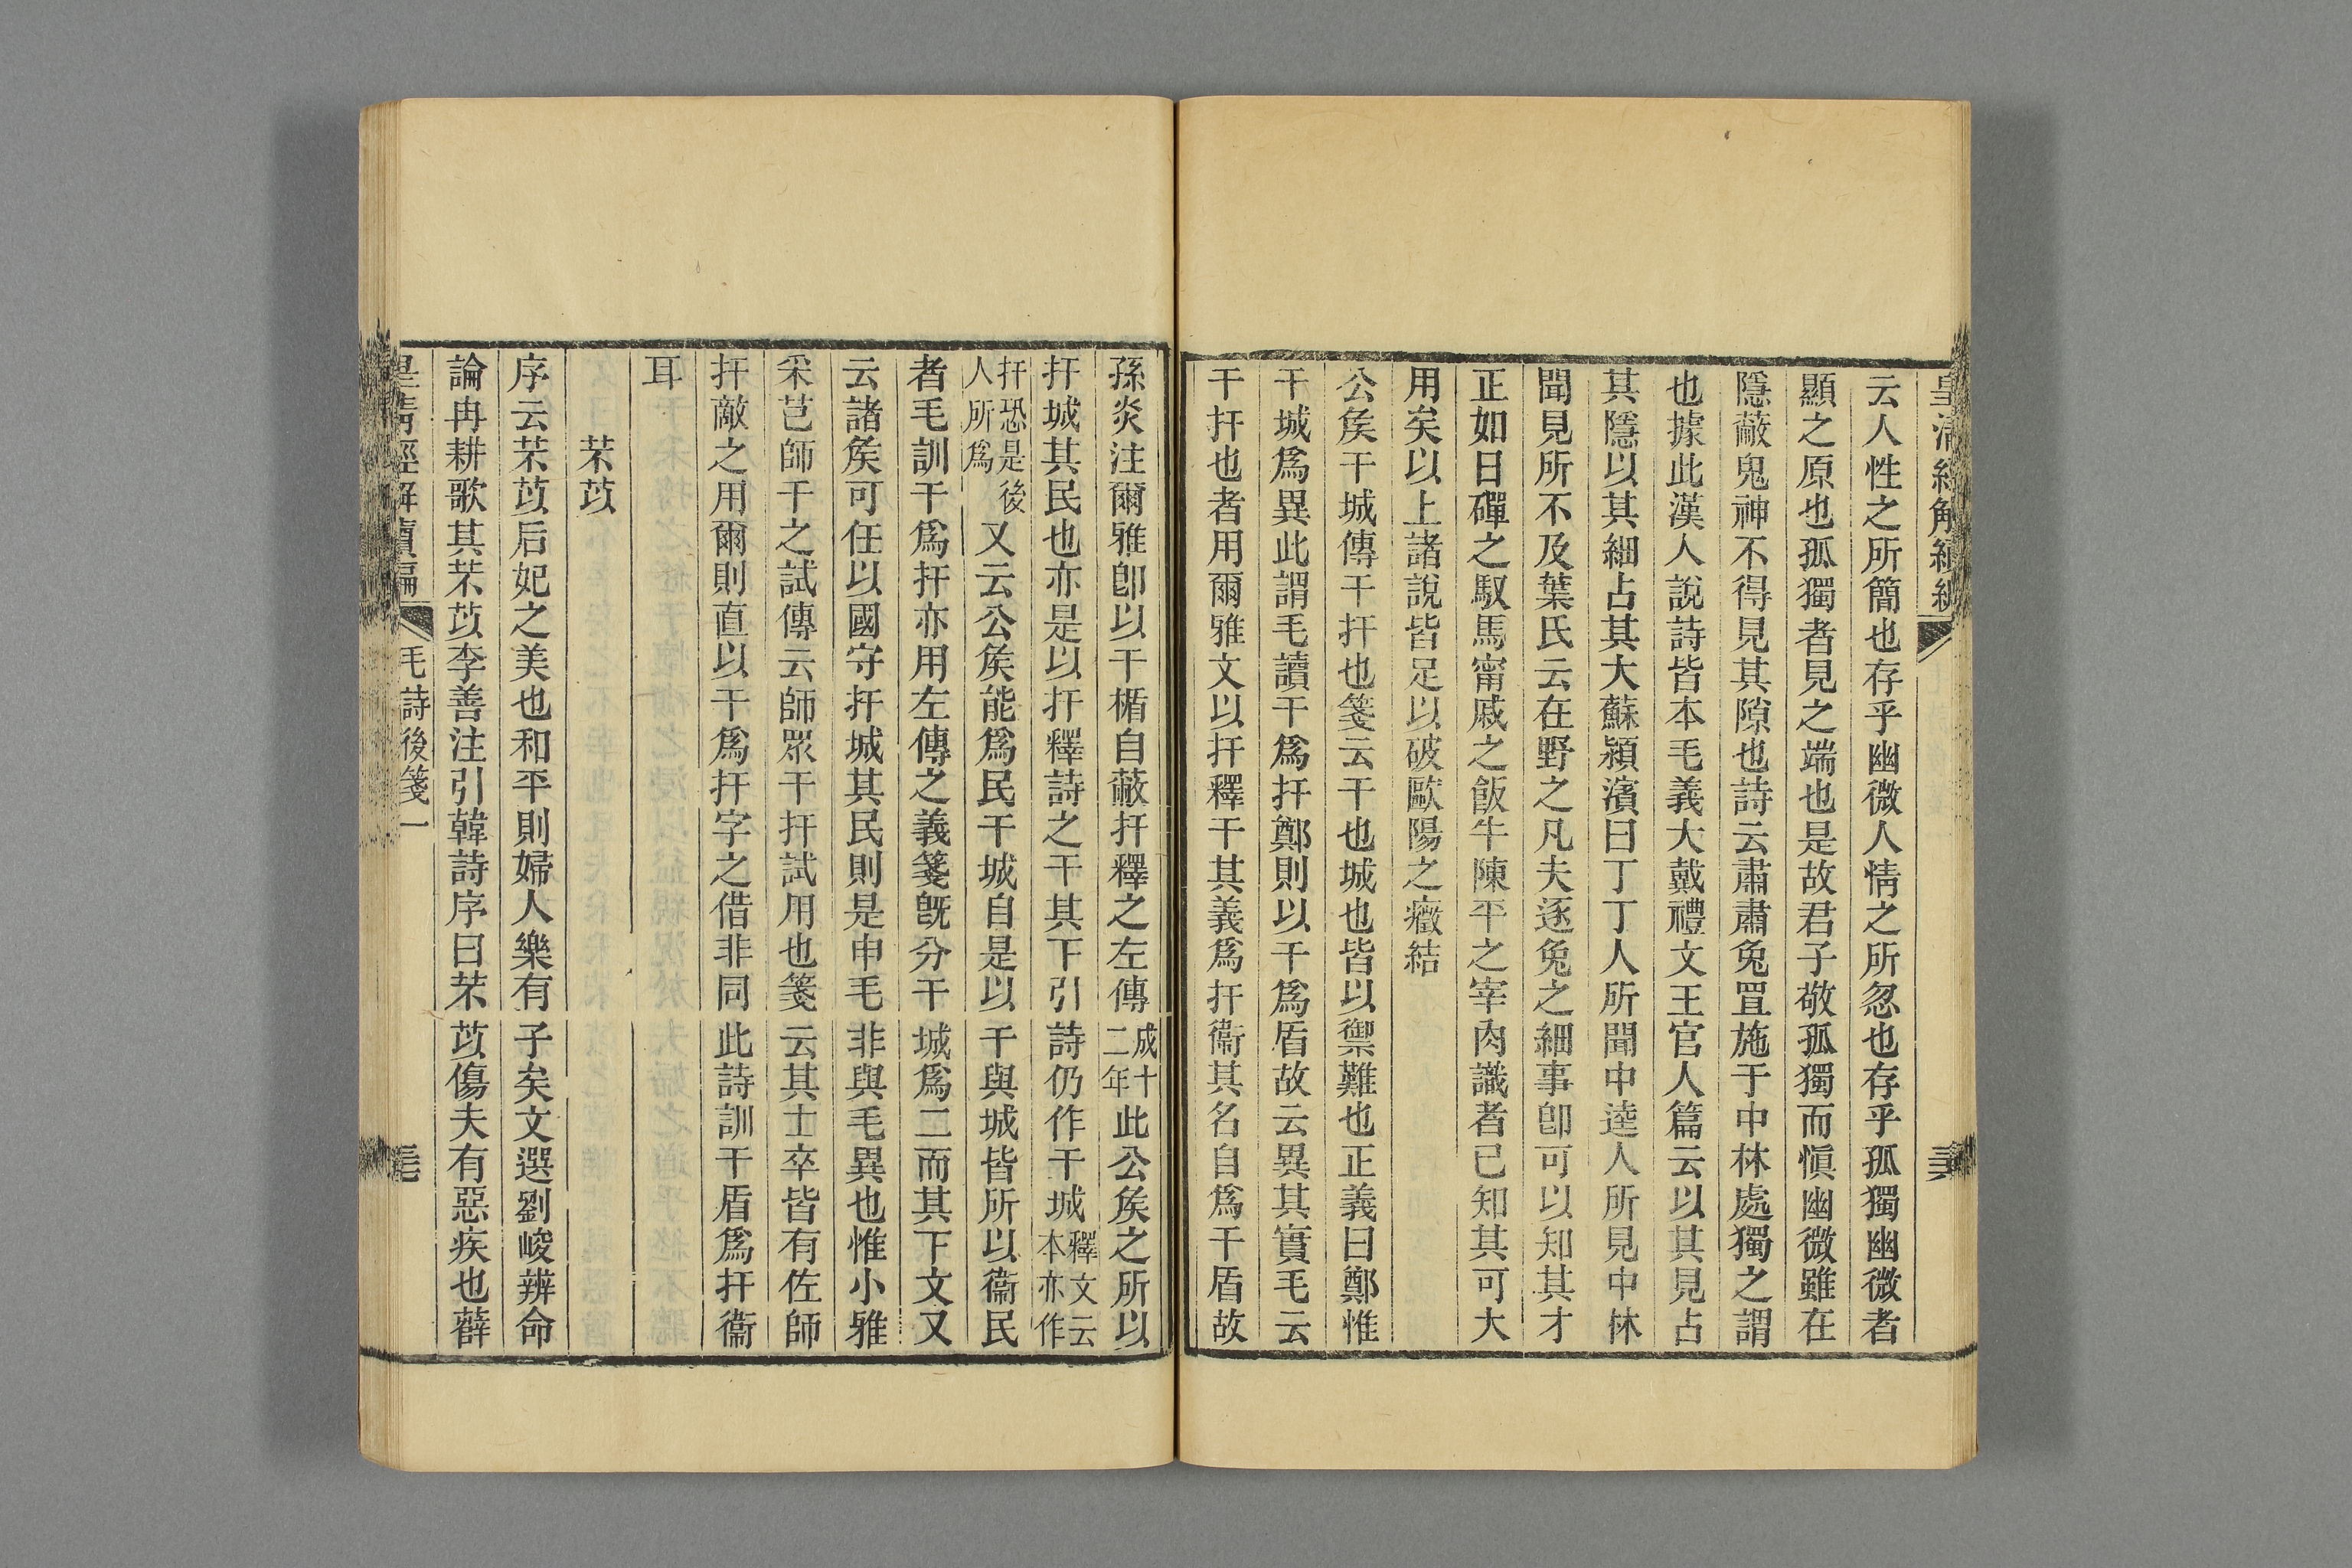 皇清經解續編
云人性之所簡也存乎幽微人情之所忽也存乎孤獨幽微者
顯之原也孤獨者見之端也是故君子敬孤獨而愼幽微雖在
隱蔽鬼神不得見其隙也詩云肅肅兔罝施于中林處獨之謂
也據此漢人說詩皆本毛義大戴禮文王官人篇云以其見占
其隱以其細占其大蘇潁濱曰丁丁人所聞中逵人所見中林
聞見所不及葉氏云在野之凡夫逐兔之細事卽可以知其才
正如日磾之馭馬甯戚之飯牛陳平之宰肉識者已知其可大
用矣以上諸說皆足以破歐陽之癥結
公矦干城傳干扞也箋云干也城也皆以禦難也正義曰鄭惟
干城爲異此謂毛讀干爲扞鄭則以干爲盾故云異其實毛云
干扞也者用爾雅文以扞釋干其義爲扞衞其名自爲干盾故
孫炎注爾雅卽以干楯自蔽扞釋之左傳成十二年此公矦之所以
扞城其民也亦是以扞釋詩之干其下引詩仍作干城釋文云本亦作
扞恐是後人所爲又云公矦能爲民干城自是以干與城皆所以衞民
者毛訓干爲扞亦用左傳之義箋旣分干城爲二而其下文又
云諸矦可任以國守扞城其民則是申毛非與毛異也惟小雅
采芑師干之試傳云師眾干扞試用也箋云其士卒皆有佐師
扞敵之用爾則直以干爲扞字之借非同此詩訓干盾爲扞衞
耳
芣苡
序云芣苡后妃之美也和平則婦人樂有子矣文選劉峻辨命
論冉耕歌其芣苡李善注引韓詩序曰芣苡傷夫有惡疾也薛
皇清經解續編
毛詩後箋一